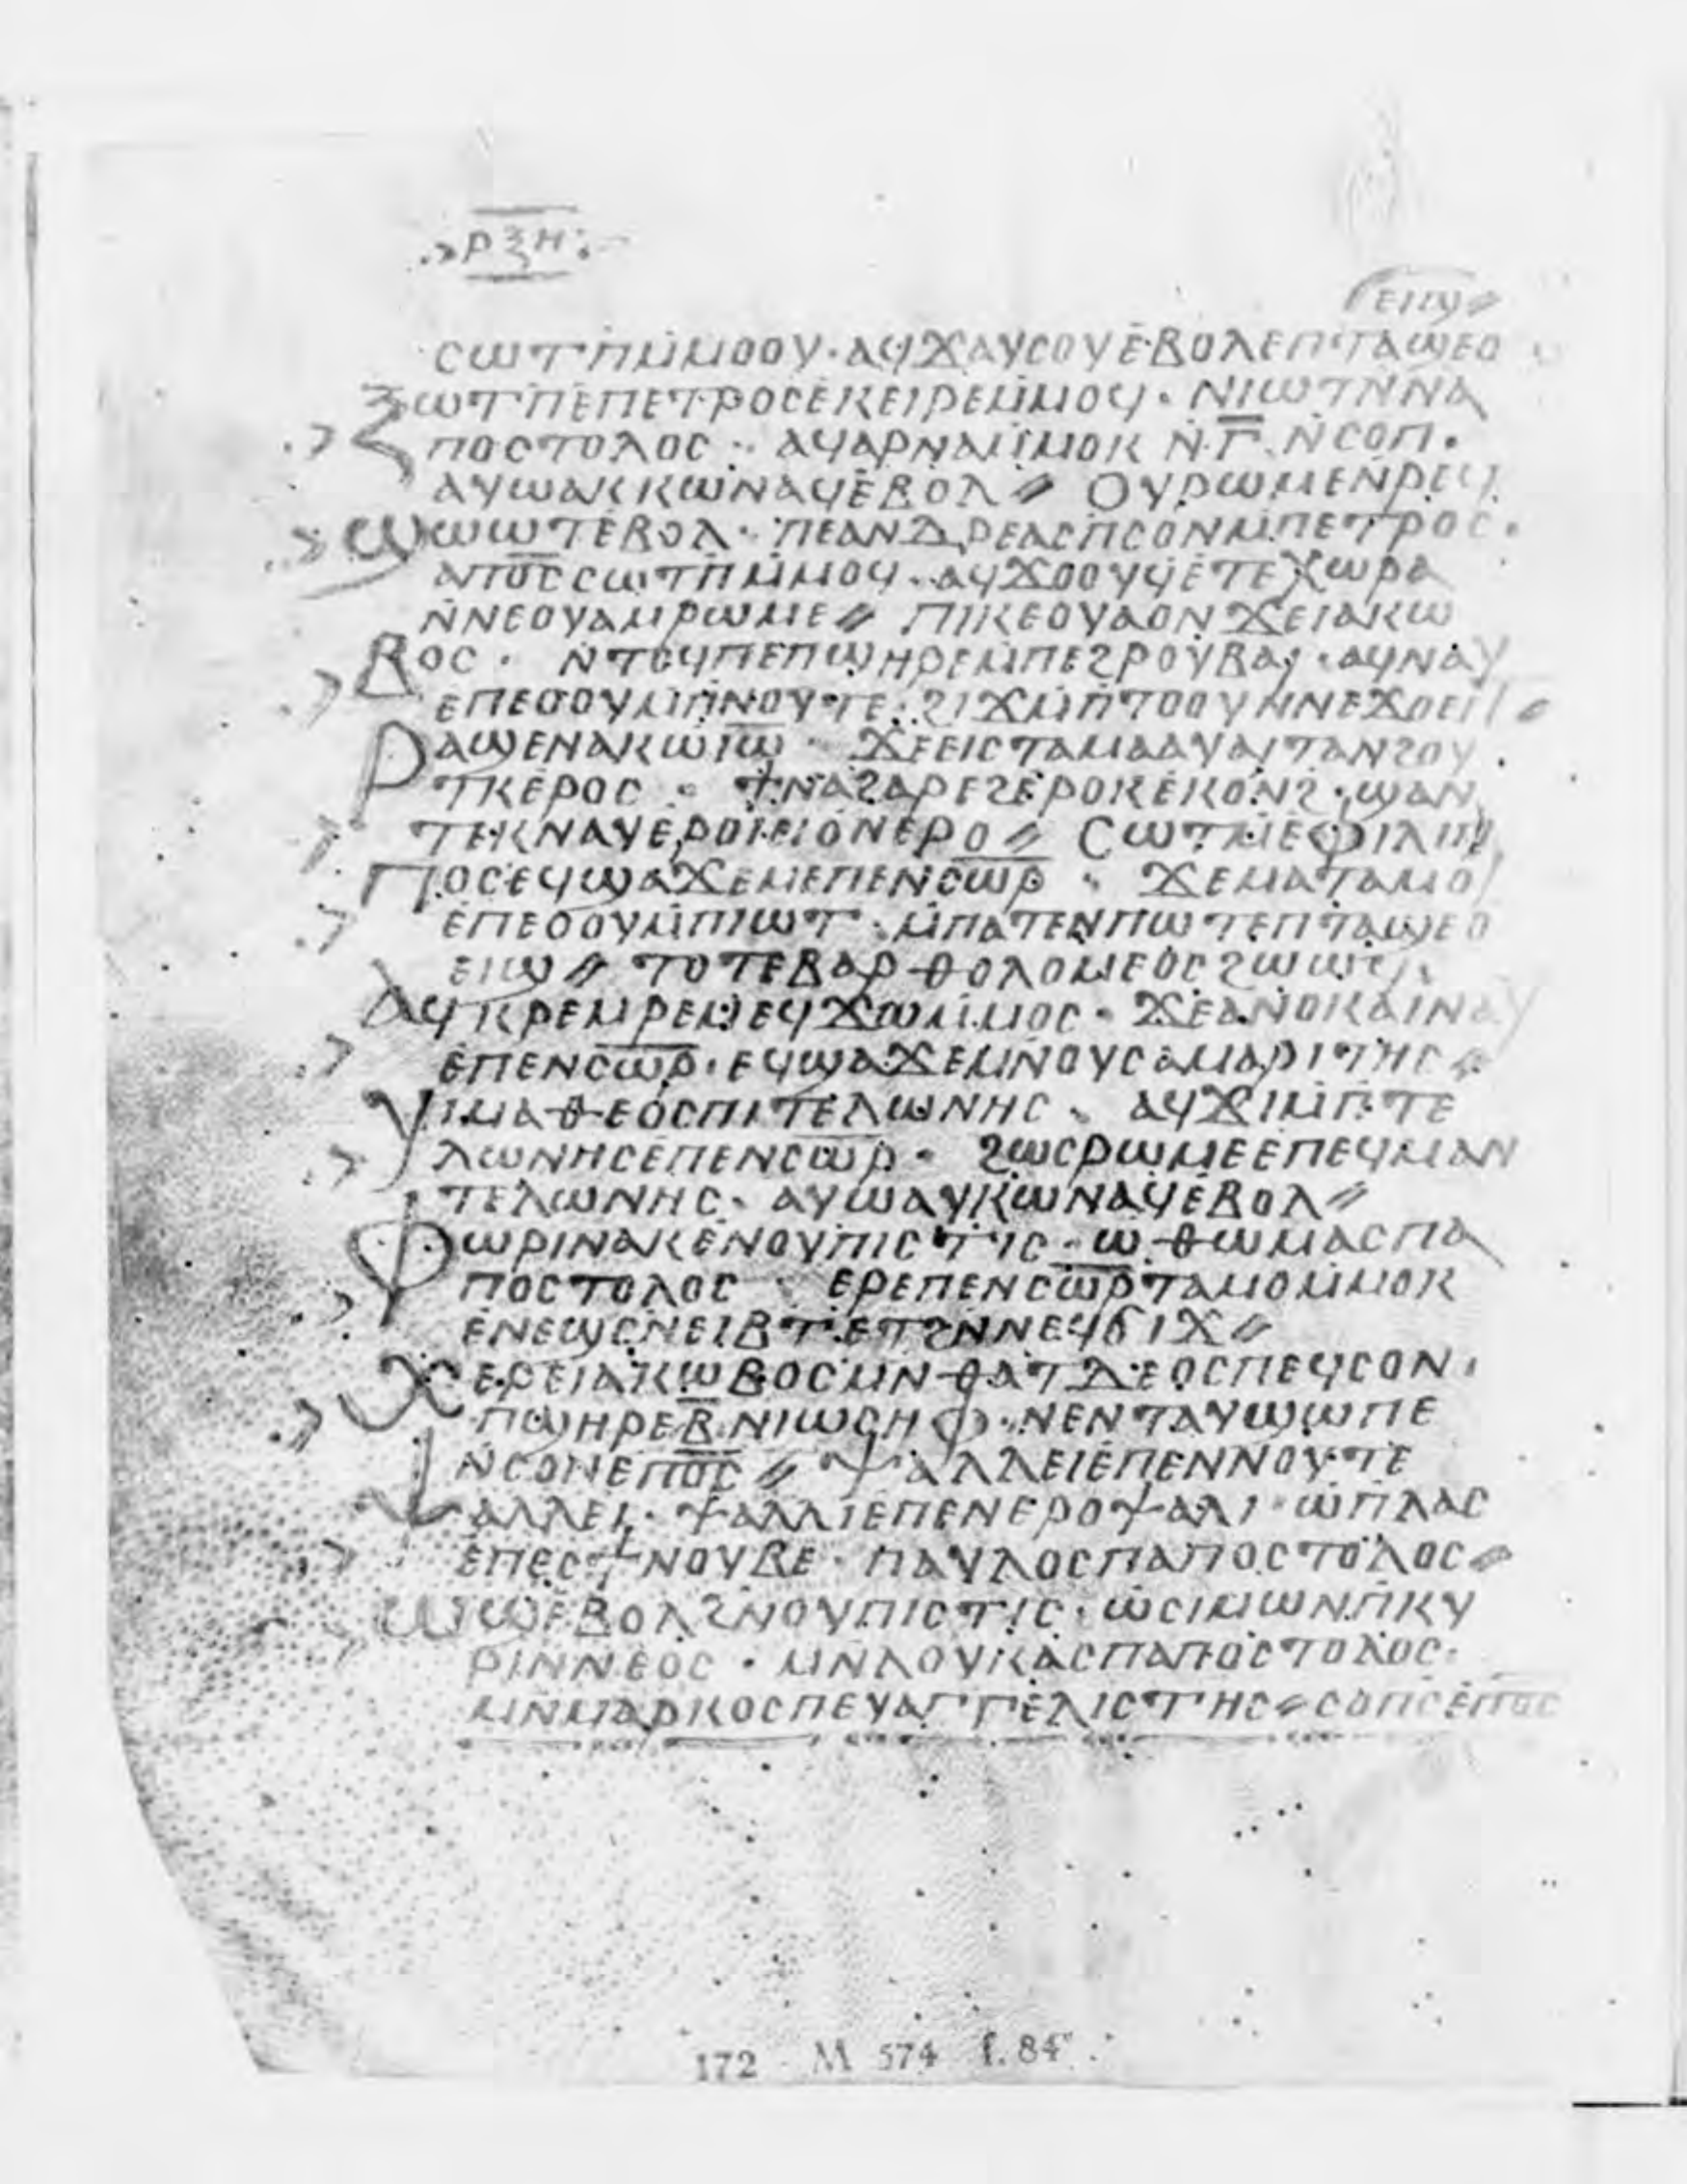 ⲣⲝⲏ
ⲉⲓϣ⳿
ⲥⲱⲧⲡⲙⲙⲟⲟⲩ· ⲁϥϫⲁⲩⲥⲟⲩⲉⲃⲟⲗⲉⲡⲧⲁϣⲉⲟ
ⲝⲱⲧⲡⲉⲡⲉⲧⲣⲟⲥⲉⲕⲉⲓⲣⲉⲙⲙⲟϥ· ⲛⲓⲱⲧⲛⲛⲁ
ⲡⲟⲥⲧⲟⲗⲟⲥ· ⲁϥⲁⲣⲛⲁⲙⲙⲟⲕ ⲛ̄ⲅ̄ⲛⲥⲟⲡ·
ⲁⲩⲱⲁⲕⲕⲱⲛⲁϥⲉⲃⲟⲗ⳿ ⲟⲩⲣⲱⲙⲉⲛⲣⲉϥ
ϣϣⲱⲧⲉⲃⲟⲗ· ⲡⲉⲁⲛⲇⲣⲉⲁⲥⲡⲥⲟⲛⲙⲡⲉⲧⲣⲟⲥ·
ⲁⲡⲟ̄ⲥ̄ⲥⲱⲧⲡⲙⲙⲟϥ· ⲁϥϫⲟⲟⲩϥⲉⲧⲉⲭⲱⲣⲁ
ⲛⲛⲉⲟⲩⲁⲙⲣⲱⲙⲉ⳿ ⲡⲓⲕⲉⲟⲩⲁⲟⲛϫⲉⲓⲁⲕⲱ
ⲃⲟⲥ· ⲛⲧⲟϥⲡⲉⲡϣⲏⲣⲉⲙⲡⲉϩⲣⲟⲩⲃⲁⲓ· ⲁϥⲛⲁⲩ
ⲉⲡⲉⲟⲟⲩⲙⲡⲛⲟⲩⲧⲉ· ϩⲓϫⲙⲡⲧⲟⲟⲩⲛⲛⲉϫⲟⲉⲓⲧ⳿
ⲣⲁϣⲉⲛⲁⲕⲱⲓ̄ⲱ̄· ϫⲉⲉⲓⲥⲧⲁⲙⲁⲁⲩⲁⲓⲧⲁⲛϩⲟⲩ
ⲧⲕⲉⲣⲟⲥ· ϯⲛⲁϩⲁⲣⲉϩⲉⲣⲟⲕⲉⲕⲟⲛϩ· ϣⲁⲛ
ⲧⲉⲕⲛⲁⲩⲉⲣⲟⲓⲉⲓⲟⲛⲉⲣⲟ⳿ ⲥⲱⲧⲙⲉⲫⲓⲗⲓⲡ
ⲡⲟⲥⲉϥϣⲁϫⲉⲙⲉⲡⲉⲛⲥ̄ⲱ̄ⲣ̄· ϫⲉⲙⲁⲧⲁⲙⲟⲓ
ⲉⲡⲉⲟⲟⲩⲙⲡⲓⲱⲧ· ⲙⲡⲁⲧⲉⲛⲡⲱⲧⲉⲡⲧⲁϣⲉⲟ
ⲉⲓϣ⳿ ⲧⲟⲧⲉⲃⲁⲣⲑⲟⲗⲟⲙⲉⲟⲥϩⲱⲱϥ
ⲁϥⲕⲣⲉⲙⲣⲉⲙⲉϥϫⲱⲙⲙⲟⲥ· ϫⲉⲁⲛⲟⲕⲁⲓⲛⲁⲩ
ⲉⲡⲉⲛⲥ̄ⲱ̄ⲣ̄· ⲉϥϣⲁϫⲉⲙⲛⲟⲩⲥⲁⲙⲁⲣⲓⲧⲏⲥ⳿
ⲩⲓⲙⲁⲑⲉⲟⲥⲡⲓⲧⲉⲗⲱⲛⲏⲥ· ⲁϥϫⲓⲙⲡⲧⲉ
ⲗⲱⲛⲏⲥⲉⲡⲉⲛⲥ̄ⲱ̄ⲣ̄· ϩⲱⲥⲣⲱⲙⲉⲉⲡⲉϥⲙⲁⲛ
ⲧⲉⲗⲱⲛⲏⲥ· ⲁⲩⲱⲁⲩⲕⲱⲛⲁϥⲉⲃⲟⲗ⳿
ⲫⲱⲣⲓⲛⲁⲕⲉⲛⲟⲩⲡⲓⲥⲧⲓⲥ· ⲱⲑⲱⲙⲁⲥⲡⲁ
ⲡⲟⲥⲧⲟⲗⲟⲥ· ⲉⲣⲉⲡⲉⲛⲥ̄ⲱ̄ⲣ̄ⲧⲁⲙⲟⲙⲙⲟⲕ
ⲉⲛⲉϣⲥⲛⲉⲓⲃⲧⲉⲧϩⲛⲛⲉϥϭⲓϫ⳿
ⲭⲉⲣⲉⲓⲁⲕⲱⲃⲟⲥⲙⲛⲑⲁⲧⲇⲉⲟⲥⲡⲉϥⲥⲟⲛ·
ⲡϣⲏⲣⲉⲃ̄ⲛⲓⲱⲥⲏⲫ· ⲛⲉⲛⲧⲁⲩϣⲱⲡⲉ
ⲛⲥⲟⲛⲉⲡⲟ̄ⲥ̄⳿ ⲯⲁⲗⲗⲉⲓⲉⲡⲉⲛⲛⲟⲩⲧⲉ
ⲯⲁⲗⲗⲉⲓ· ⲯⲁⲗⲗⲓⲉⲡⲉⲛⲉⲣⲟⲯⲁⲗⲓ· ⲱⲡⲗⲁⲥ
ⲉⲡⲉⲥϯⲛⲟⲩⲃⲉ· ⲡⲁⲩⲗⲟⲥⲡⲁⲡⲟⲥⲧⲟⲗⲟⲥ⳿
ⲱϣⲉⲃⲟⲗϩⲛⲟⲩⲡⲓⲥⲧⲓⲥ· ⲱⲥⲓⲙⲱⲛⲡⲕⲩ
ⲣⲓⲛⲛⲉⲟⲥ· ⲙⲛⲗⲟⲩⲕⲁⲥⲡⲁⲡⲟⲥⲧⲟⲗⲟⲥ·
ⲙⲛⲙⲁⲣⲕⲟⲥⲡⲉⲩⲁⲅⲅⲉⲗⲓⲥⲧⲏⲥ⳿ ⲥⲟⲡⲥⲉⲡⲟ̄ⲥ̄
172 M 574 f. 84ᵛ